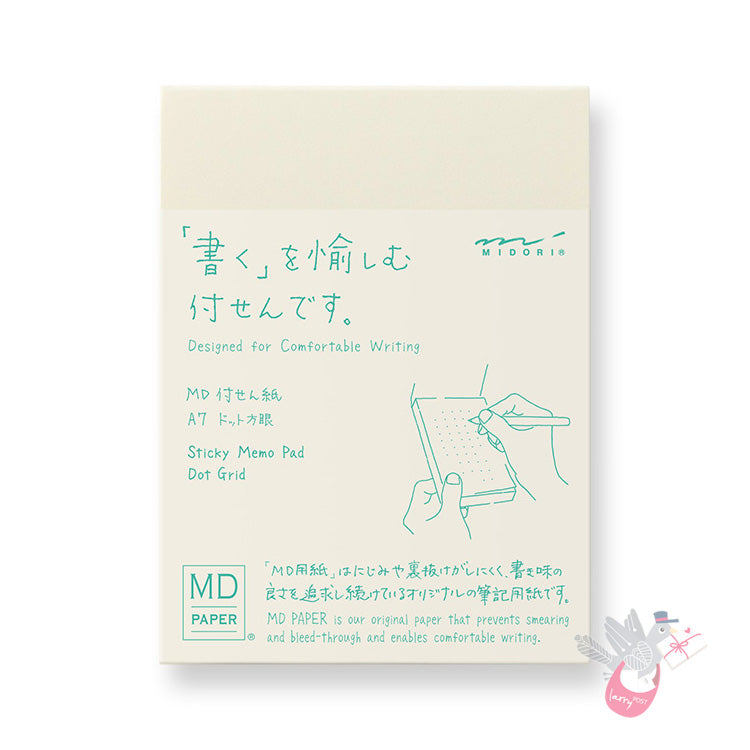 「書く」を愉しむ
付せんです。
MIDORI®
Designed for Comfortable Writing
MD 付せん紙
A7 ドット方眼
Sticky Memo Pad
Dot Grid
MD
PAPER®
「MD用紙」はにじみや裏抜けがしにくく、書き味の
良さを追求し続けているオリジナルの筆記用紙です。
MD PAPER is our original paper that prevents smearing
and bleed-through and enables comfortable writing.
larry POST